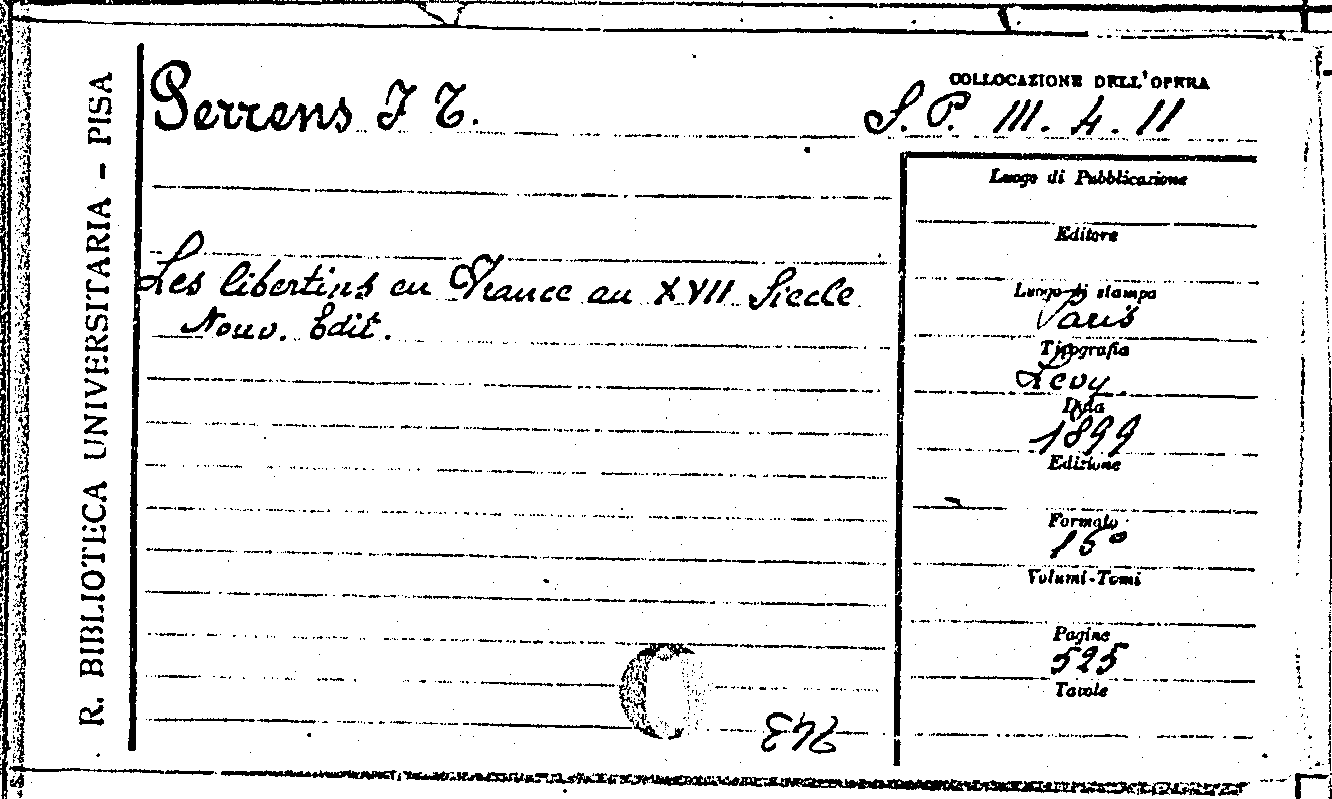 R. BIBLIOTECA UNIVERSITARIA - PISA
Perrens F T.
COLLOCAZIONE DELL'OPERA
S. P. III. 4. 11
Les libertins en France au XVII Siecle
Nouv. Edit.
Luogo di Pubblicazione
Editore
Luogo di stampa
Paris
Tipografia
Levy.
Data
1899
Edizione
Formato
16°
Volumi-Tomi
Pagine
525
Tavole
243